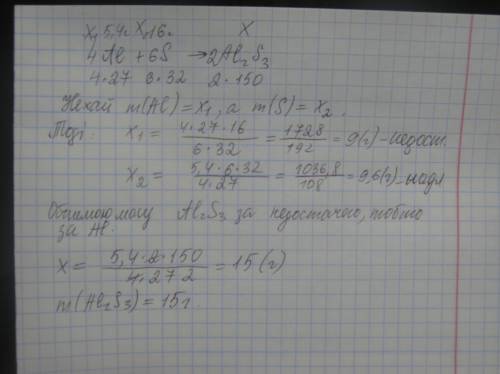 x₁ 5,4г x₂ 16г x
4Al + 6S → 2Al₂S₃
4·27 6·32 2·150
Нехай m(Al)=x₁, а m(S)=x₂.
Тоді: x₁ = 4·27·16 / 6·32 = 1728 / 192 = 9(г) – недост.
x₂ = 5,4·6·32 / 4·27 = 1036,8 / 108 = 9,6(г) – надл
Обчислюю масу Al₂S₃ за недостачею, тобто
за Al.
x = 5,4·2·150 / 4·27 2 = 15 (г)
m(Al₂S₃) = 15г.